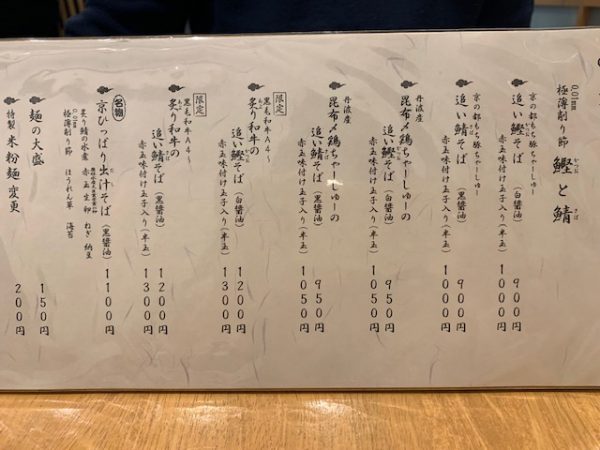 0.01mm
極薄削り節 鰹と鯖
かつお
さば
京の都もち豚ちゃーしゅー
追い鰹そば（白醤油）
かつお
赤玉味付け玉子入り（半玉）
900円
1000円
京の都もち豚ちゃーしゅー
追い鯖そば（黒醤油）
さば
赤玉味付け玉子入り（半玉）
900円
1000円
丹波産
昆布〆鶏ちゃーしゅーの
追い鰹そば（白醤油）
かつお
赤玉味付け玉子入り（半玉）
950円
1050円
丹波産
昆布〆鶏ちゃーしゅーの
追い鯖そば（黒醤油）
さば
赤玉味付け玉子入り（半玉）
950円
1050円
限定
黒毛和牛A4〜
炙り和牛の
あぶ
追い鰹そば（白醤油）
かつお
赤玉味付け玉子入り（半玉）
1200円
1300円
限定
黒毛和牛A4〜
炙り和牛の
あぶ
追い鯖そば（黒醤油）
さば
赤玉味付け玉子入り（半玉）
1200円
1300円
名物
京ひっぱり出汁そば（黒醤油）
だし
1100円
炙り鯖の水煮 赤玉生卵 ねぎ 納豆
0.01mm
極薄削り節 ほうれん草 海苔
麺の大盛
150円
特製 米粉麺変更
200円